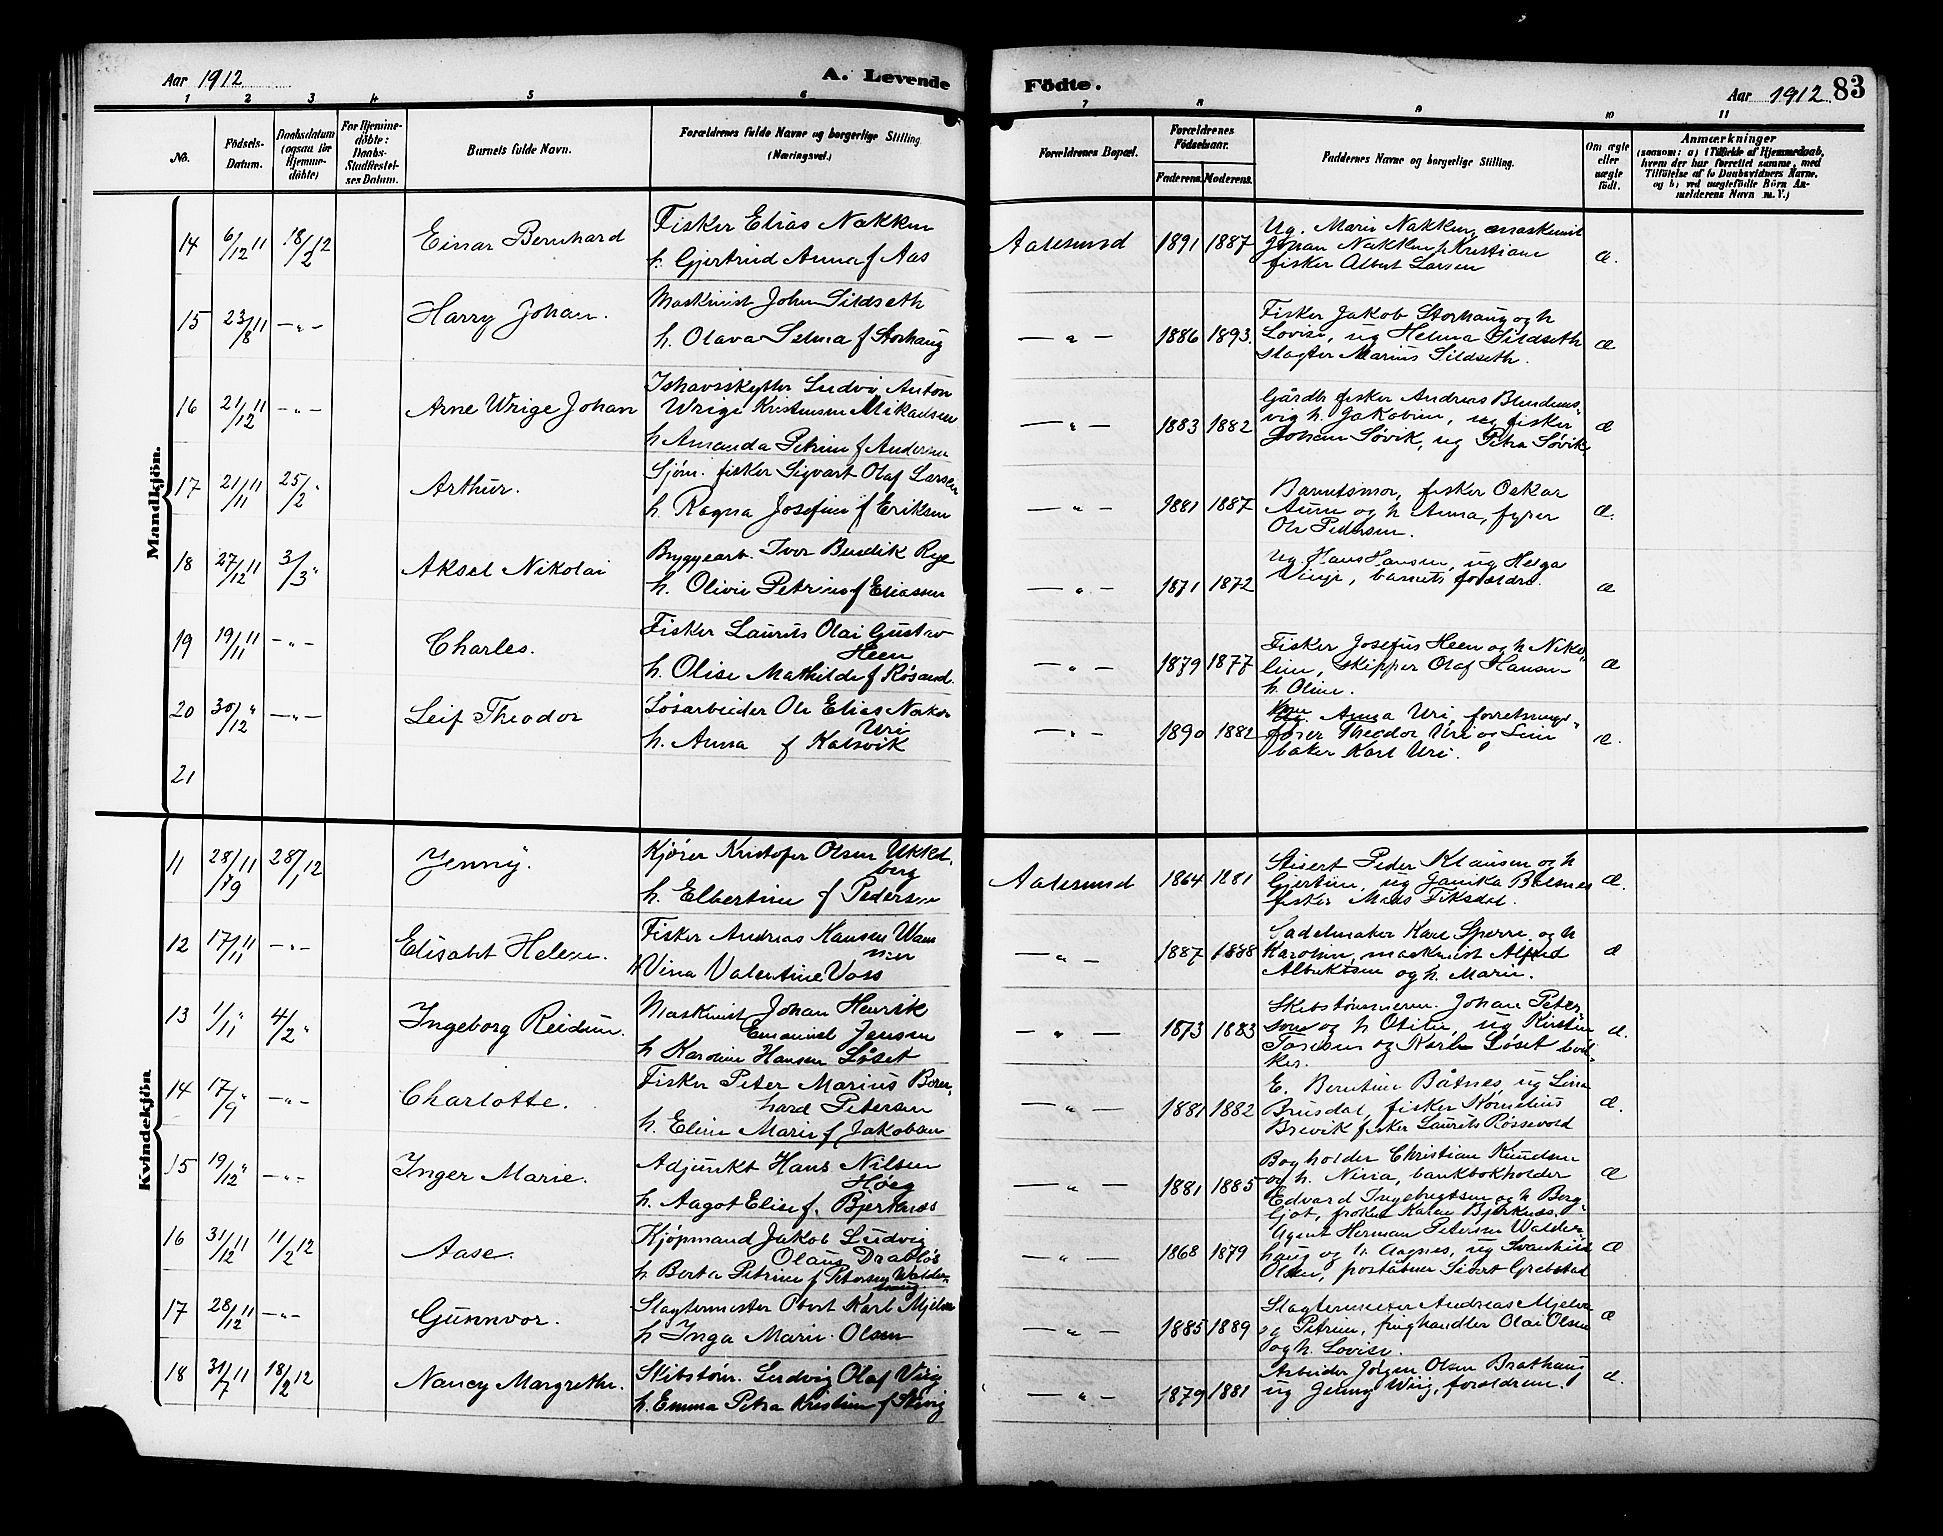 Aar 1912 A. Levende Födte. Aar 1912 83
1 2 3 4 5 6 7 8 9 10 11
No.
Födsels-Datum.
Daabsdatum (ogsaa for Hjemme-döbte)
For Hjemme-döbte: Daabs-Stadfæstel-ses Datum.
Barnets fulde Navn.
Forældrenes fulde Navne og borgerlige Stilling
(Næringsvei.)
Forældrenes Bopæl.
Forældrenes Födselsaar.
Faderens. Moderens.
Faddernes Navne og borgerlige Stilling.
Om ægte eller uægte födt.
Anmærkninger
(saasom: a) i Tilfælde af Hjemmedaab,
hvem der har forrettet samme, med
Tilföielse af to Daabsvidners Navne,
og b) ved uægtefödte Börn An-
melderens Navn m. V.)
Mandkjön.
14 6/12 11 18/2 12 Einar Bernhard Fisker Elias Nakken
h. Gjertrud Anna f Aas
Aalesund 1891 1887 Ug. Marie Nakken, maskinist
Johan Nakken, h Kristiane
fisker Albert Larsen
æ.
15 23/8 11 —„— Harry Johan. Maskinist Johan Sildseth
h. Olava Selma f Storhaug
— „ — 1886 1893. Fisker Jakob Storhaug og h
Lovise, ug Helma Sildseth
slagter Marius Sildseth.
æ
16 21/12 11 —„— Arne Wrige Johan Ishavsskytter Ludvi Anton
Wrige Kristensen Mikalsen
h Amanda Petrine f Andersen
— „ — 1883 1882 Gårdbr fisker Andreas Blindens-
vig h. Jakobine, ug fisker
Johan Søvik, ug Petra Søvik
æ
17 21/11 11 25/2 „ Arthur. Sjøm. fisker Sigvart Olaf Larsen
h. Ragna Josefine f Eriksen
— „ — 1881 1887 Barnetsmor, fisker Oskar
Aune og h Anna, fyrer
Ole Pedersen.
æ.
18 27/12 11 3/3 „ Aksel Nikolai Bryggearb. Iver Bendik Rye
h. Olivie Petrine f Eliassen
— „ — 1871 1872 Ug Hans Hansen, ug Helga
Vinje, barnets forældre.
æ
19 19/11 11 —„— Charles. Fisker Laurits Olai Gustav
Heen
h. Olise Mathilde f Røsand.
— „ — 1879 1877 Fisker Josefus Heen og h Niko-
line, skipper Olaf Hansen
h. Oline.
æ
20 30/12 „ —„— Leif Theodor Løsarbeider Ole Elias
Uri
h. Anna f Kalsvik
— „ — 1890 1882 Anna Uri, forretnings-
fører Theodor Uri og Line
baker Karl Uri.
æ.
21
Kvindekjön
11 28/9 11 28/1 12 Jenny. Kjører Kristofer Olsen
berg
h. Elbertine f Pedersen
Aalesund 1864 1881 Stuert Peder Klausen og h
Gjertine, ug Janika Balsnes
fisker Mads Fiksdal.
æ.
12 17/11 11 —„— Elisabet Helene. Fisker Andreas Hansen Wam
nen
h Vina Valentine Voss
— „ — 1887 1888 Sadelmaker Karl Sperre og h
Karoline, maskinist Alfred
Albertsen og h. Marie.
æ
13 1/11 „ 4/2 „ Ingeborg Reidun. Maskinist Johan Henrik
Emanuel Jensen
h Karoline Hansen Løset
— „ — 1873 1883 Skibstømmerm. Johan Peter-
sen og h Otilie, ug Kirstine
og Karl Løset bød-
ker.
æ.
14 17/9 „ —„— Charlotte. Fisker Peter Marius Bern-
hard Petersen
h. Eline Marie f Jakobsen
— „ — 1881 1882 E. Berntine Båtnes, ug Lina
Brusdal, fisker Kornelius
Brevik fisker Laurits Røssevold
æ.
15 19/12 „ —„— Inger Marie. Adjunkt Hans Nilsen
Høeg
h. Aagot Elise f. Bjerknes
— „ — 1881 1885 Bogholder Christian Knudsen
og h. Nina, bankbokholder
Edvard Ingebregtsen og h Berg-
ljot, frøken Karen Bjerknes.
æ
16 31/12 11 11/2 12 Aase. Kjøpmand Jakob Ludvig
Olaus Drabløs
h Berta Petrine f Petersen Walder-
haug
— „ — 1868 1879 Agent Herman Petersen Walder-
haug og h. Agnes, ug Svanhild
Olsen, postaabner Sivert Grebstad
æ
17 28/12 11 —„— Gunnvor. Slagtermester Obert Karl Mjelva
h Inga Marie Olsen
— „ — 1885 1889 Slagtermester Andreas Mjelva
og Petrine, finghandler Olai Olsen
og h. Lovise.
æ
18 31/7 11 18/2 12 Nancy Margrethe. Skibstøm. Ludvig Olaf Viig
h. Emma Petra Kristine f Stevig
— „ — 1879 1881 Arbeider Jørgen Olsen Brathaug
ug Jenny Wiig, forældrene.
æ.